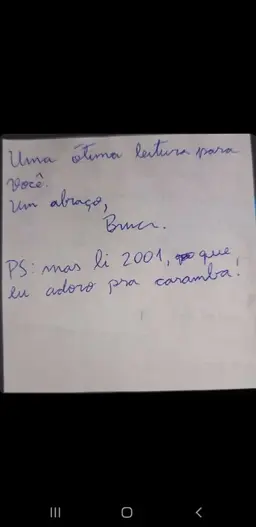 Uma ótima leitura para
você.
Um abraço,
PS: mas li 2001, que
eu adoro pra caramba!